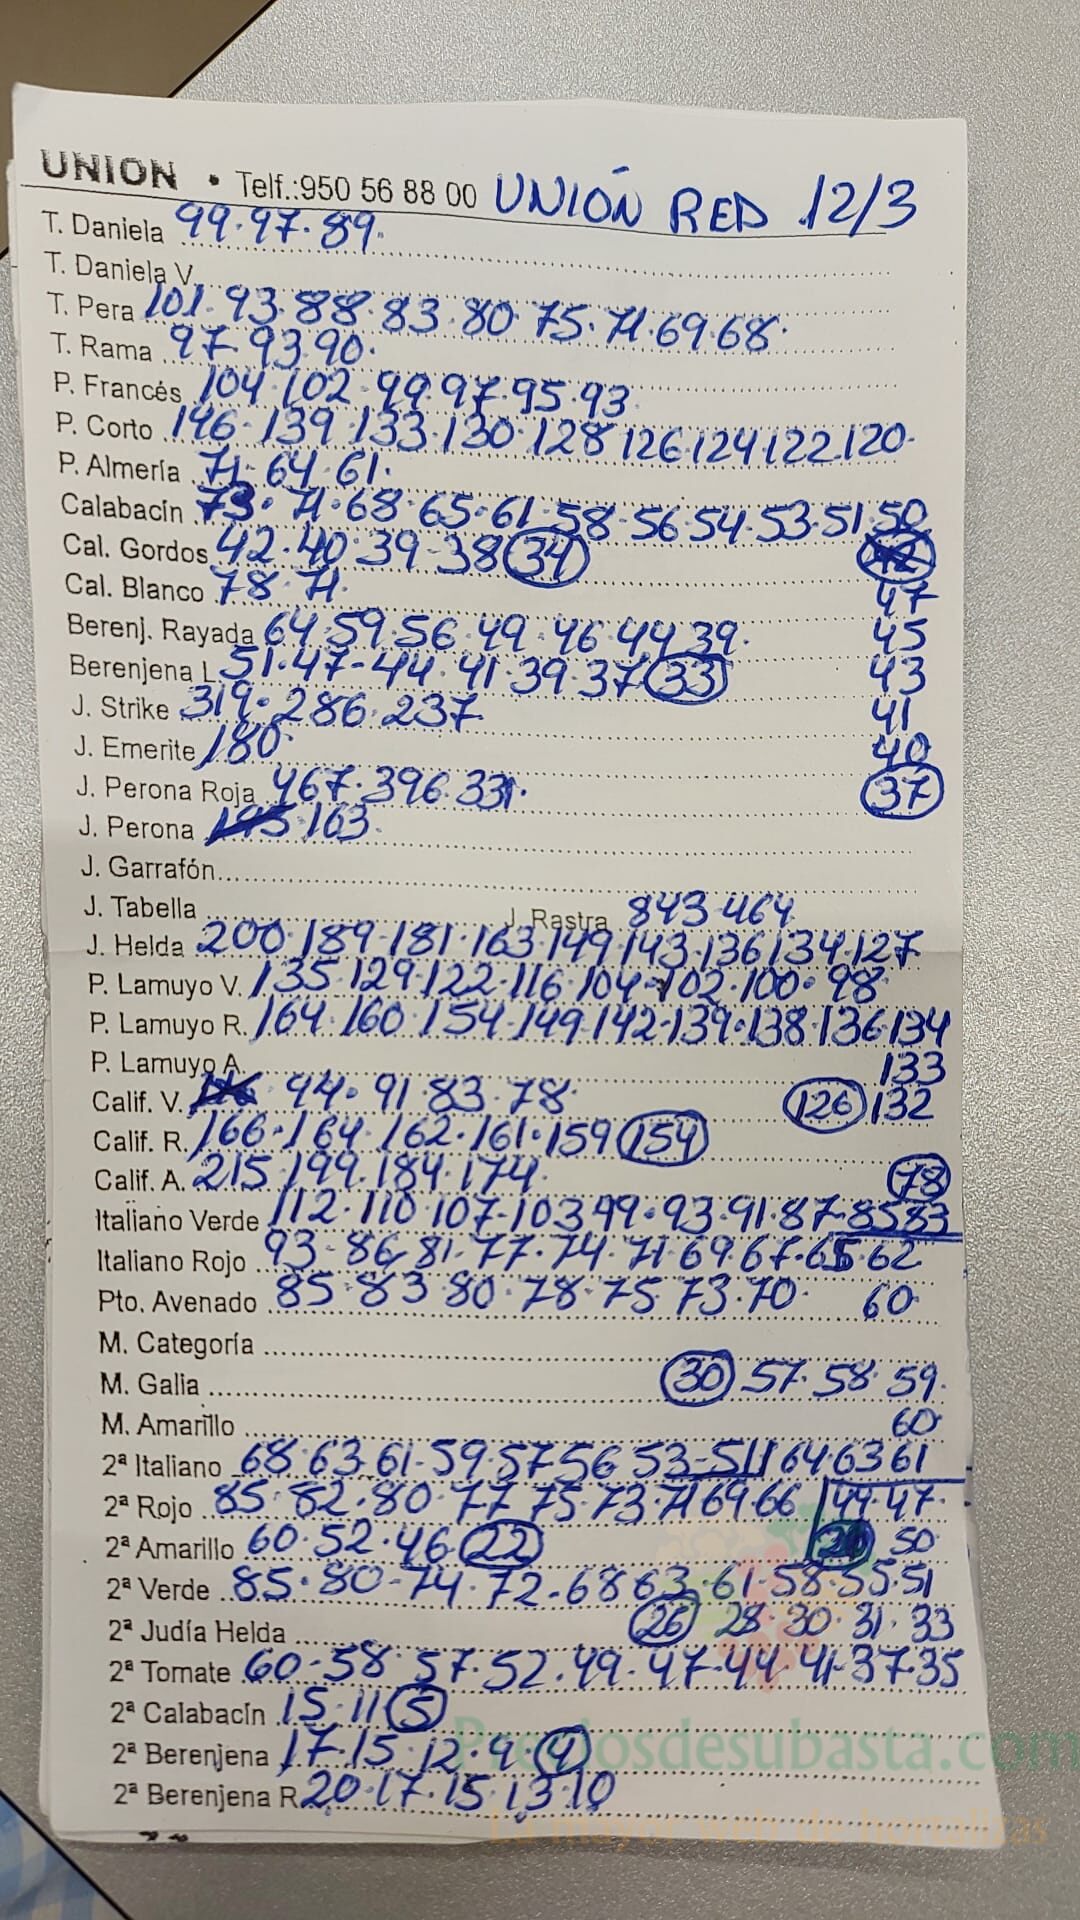 UNION • Telf.:950 56 88 00 UNIÓN RED 12/3
T. Daniela 99.97.89.
T. Daniela V.
T. Pera 101.93.88.83.80.75.71.69.68.
T. Rama 97.93.90.
P. Francés 104.102.99.97.95.93
P. Corto 146.139.133.130.128 126.124.122.120.
P. Almería 71.64.61.
Calabacín 73.71.68.65.61.58.56.54.53.51.50
Cal. Gordos 42.40.39-38 34
Cal. Blanco 78.71. 47
Berenj. Rayada 64.59.56.49.46.44.39. 45
Berenjena L 51.47-44.41.39.37 33 43
J. Strike 319.286.237 41
J. Emerite 180. 40
J. Perona Roja 467.396.331. 37
J. Perona 163.
J. Garrafón
J. Tabella J. Rastra 843-464
J. Helda 200.189-181.163.149.143.136 134.127
P. Lamuyo V. 135.129.122.116.104.102.100.98.
P. Lamuyo R. 164.160.154.149.142.139.138.136.134
P. Lamuyo A. 133
Calif. V. 94.91 83.78. 126 132
Calif. R. 166.164.162.161.159 154
Calif. A. 215.199.184.174. 78
Italiano Verde 112.110.107-103 99.93.91.87-85 83
Italiano Rojo 93-86 81.77.74.71 69.67.65.62
Pto. Avenado 85.83.80.78.75.73.70. 60
M. Categoría
M. Galia 30 57.58.59.
M. Amarillo 60
2ª Italiano 68.63.61-59.57 56 53-51 64.63 61
2ª Rojo 85.82.80.77 75.73.71 69.66 44.47.
2ª Amarillo 60.52.46 22 50
2ª Verde 85.80-74.72-68 63.61.58.55.51
2ª Judía Helda 26 28.30.31.33
2ª Tomate 60-58.57.52.49.47-44.41-37-35
2ª Calabacín 15.11 5
2ª Berenjena 17.15.12.9.4
2ª Berenjena R 20.17.15.13.10
Preciosdesubasta.com
La mayor web de hortalizas